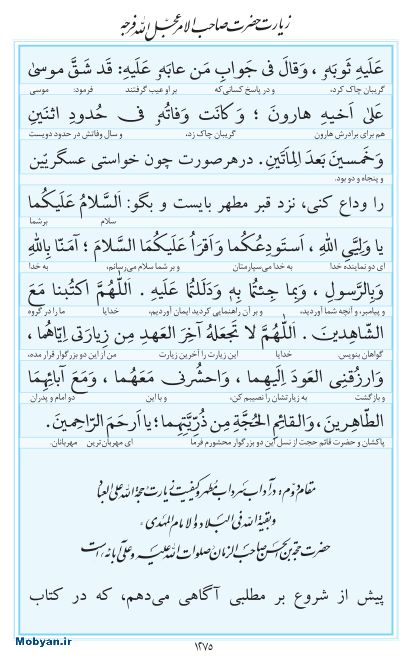 زیارت حضرت صاحب الامر عجل الله فرجه
عَلَيهِ ثَوبَهُ ، وَقالَ فی جَوابِ مَن عابَهُ عَلَيهِ: قَد شَقَّ موسیٰ
گریبان چاک کرد، و در پاسخ کسانی‌که بر او عیب گرفتند فرمود: موسی
عَلیٰ اَخیهِ هارونَ ؛ وَکانَت وَفاتُهُ فی حُدودِ اثنَينِ
هم برای برادرش هارون گریبان چاک زد، و سال وفاتش در حدود دویست
وَخَمسينَ بَعدَ المِاتَينِ. درهرصورت چون خواستی عسگریّین
و پنجاه و دو بود.
را وداع کنی، نزد قبر مطهر بایست و بگو: اَلسَّلامُ عَلَيکُما
سلام برشما
يا وَلِيَّیِ اللهِ ، اَستَودِعُکُما وَاَقرَأُ عَلَيکُمَا السَّلامَ ؛ آمَنّا بِاللهِ
ای دو نماینده خدا به خدا می‌سپارمتان و بر شما سلام می‌رسانم، به خدا
وَبِالرَّسولِ ، وَبِما جِئتُما بِهِ وَدَلَلتُما عَلَيهِ . اَللّٰهُمَّ اکتُبنا مَعَ
و پیامبر، و آنچه شما آوردید، و بر آن راهنمایی کردید ایمان آوردیم، خدایا ما را در گروه
الشّاهِدينَ . اَللّٰهُمَّ لا تَجعَلهُ آخِرَ العَهدِ مِن زِيارَتی اِيّاهُما ،
گواهان بنویس. خدایا این زیارت را آخرین زیارت من از این دو بزرگوار قرار مده،
وَارزُقنِی العَودَ اِلَيهِما ، وَاحشُرنی مَعَهُما ، وَمَعَ آبائِهِمَا
و بازگشت به زیارتشان را نصیبم کن، و با این دو امام و پدران
الطّاهِرينَ ، وَالقائِمِ الحُجَّةِ مِن ذُرِّيَّتِهِما؛ يا اَرحَمَ الرّاحِمينَ.
پاکشان و حضرت قائم حجت از نسل این دو بزرگوار محشورم فرما ای مهربان‌ترین مهربانان.
مقام دوم : در آداب سرداب مطهر و کیفیت زیارت حجة الله علی العباد
و بقیة الله فی البلاد الامام المهدی
حضرت حجة بن الحسن صاحب الزمان صلوات الله علیه و علی آبائه است
پیش از شروع بر مطلبی آگاهی می‌دهم، که در کتاب
۱۲۷۵
Mobyan.ir